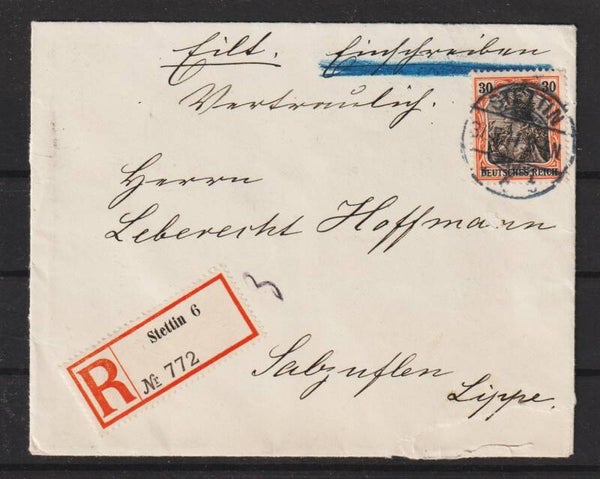 Eilt. Einschreiben
Vertraulich.
30 30
STETTIN
DEUTSCHES REICH
Herrn
Leberecht Hoffmann
R
Stettin 6
№ 772
Salzuflen
Lippe.